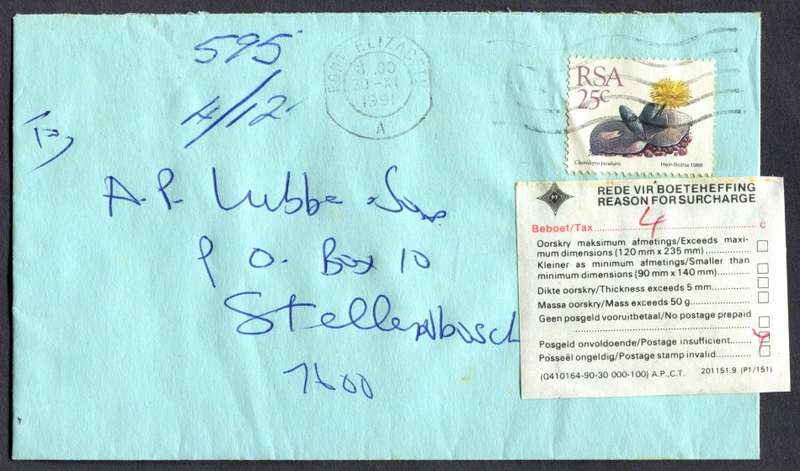 595
4/12
To,
A.P. Lubbe & Sons
P O. Box 10
Stellenbosch
7600
PORT ELIZABETH
8.00
20-XI
1991
A
RSA
25c
Hein Botha 1988
REDE VIR BOETEHEFFING
REASON FOR SURCHARGE
Beboet/Tax 4 c
Oorskry maksimum afmetings/Exceeds maxi-
mum dimensions (120 mm x 235 mm)
Kleiner as minimum afmetings/Smaller than
minimum dimensions (90 mm x 140 mm)
Dikte oorskry/Thickness exceeds 5 mm
Massa oorskry/Mass exceeds 50 g
Geen posgeld vooruitbetaal/No postage prepaid
Posgeld onvoldoende/Postage insufficient
Posseël ongeldig/Postage stamp invalid
(Q410164-90-30 000-100) A.P.,C.T. 201151.9 (P1/151)